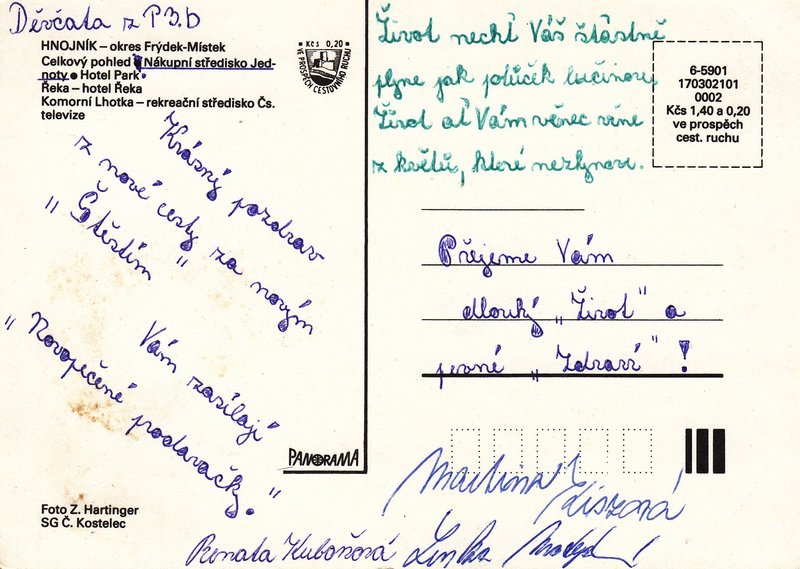 Děvčata z P3.b
HNOJNÍK – okres Frýdek-Místek
Celkový pohled ● Nákupní středisko Jed-
noty ● Hotel Park
Řeka – hotel Řeka
Komorní Lhotka – rekreační středisko Čs.
televize
Kčs 0,20
VE PROSPĚCH CESTOVNÍHO RUCHU
Krásný pozdrav
z nové cesty za novým
" Štěstím "
Vám zasílají
" Novopečené prodavačky. "
PANORAMA
Foto Z. Hartinger
SG Č. Kostelec
Život nechť Váš šťastně
plyne jak potůček lučinou,
Život ať Vám věnec vine
z květů, které nezhynou.
6-5901
170302101
0002
Kčs 1,40 a 0,20
ve prospěch
cest. ruchu
Přejeme Vám
dlouhý „Život" a
pevné „Zdraví" !
Martina
Renata Kuboňová Lenka